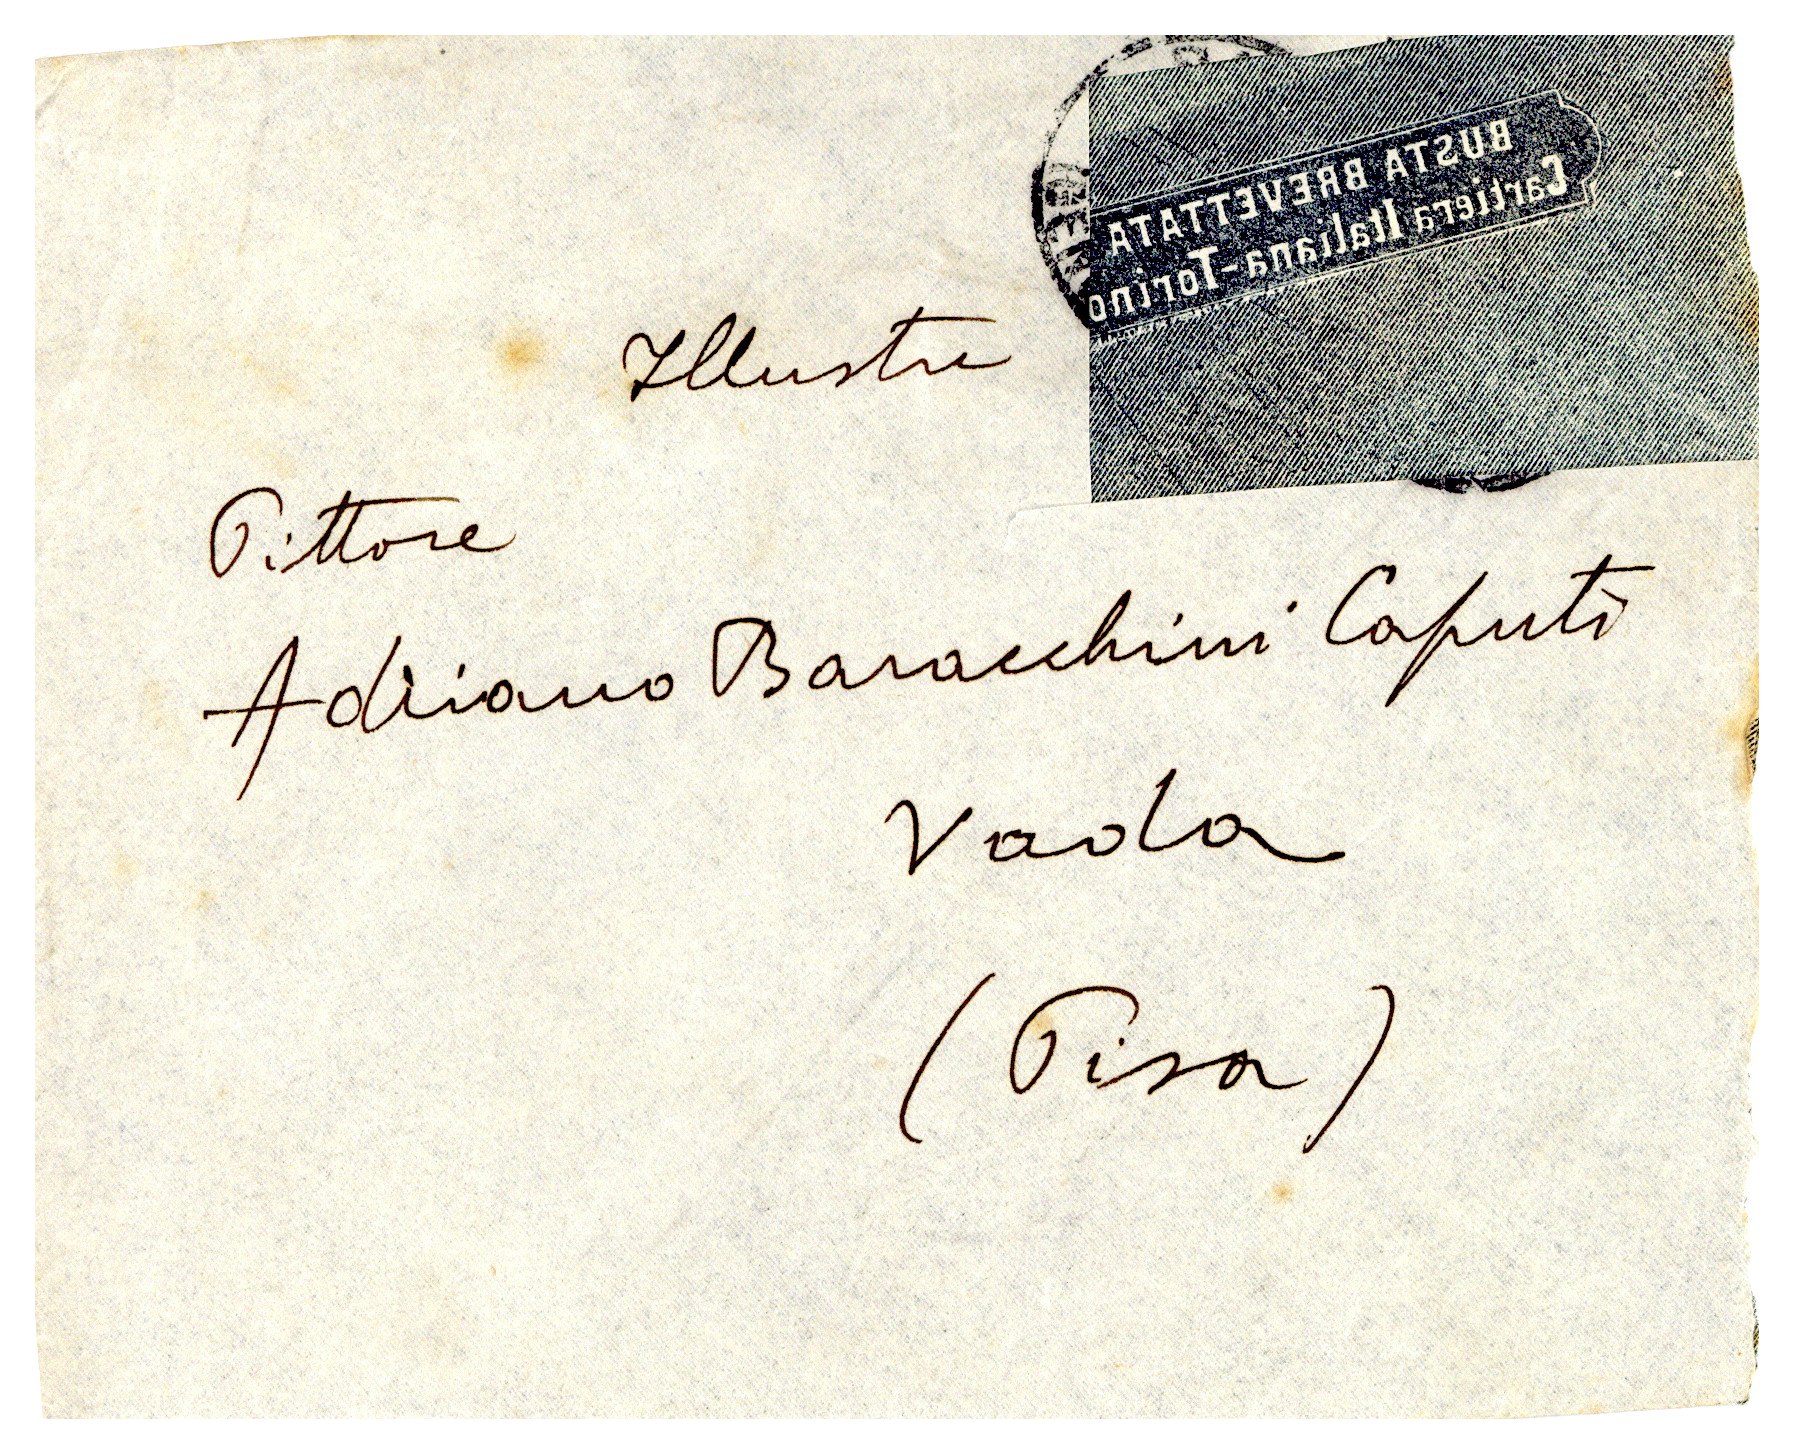 BUSTA BREVETTATA
Cartiera Italiana-Torino
Illustre
Pittore
Adriano Baracchini Caputi
Vada
(Pisa)